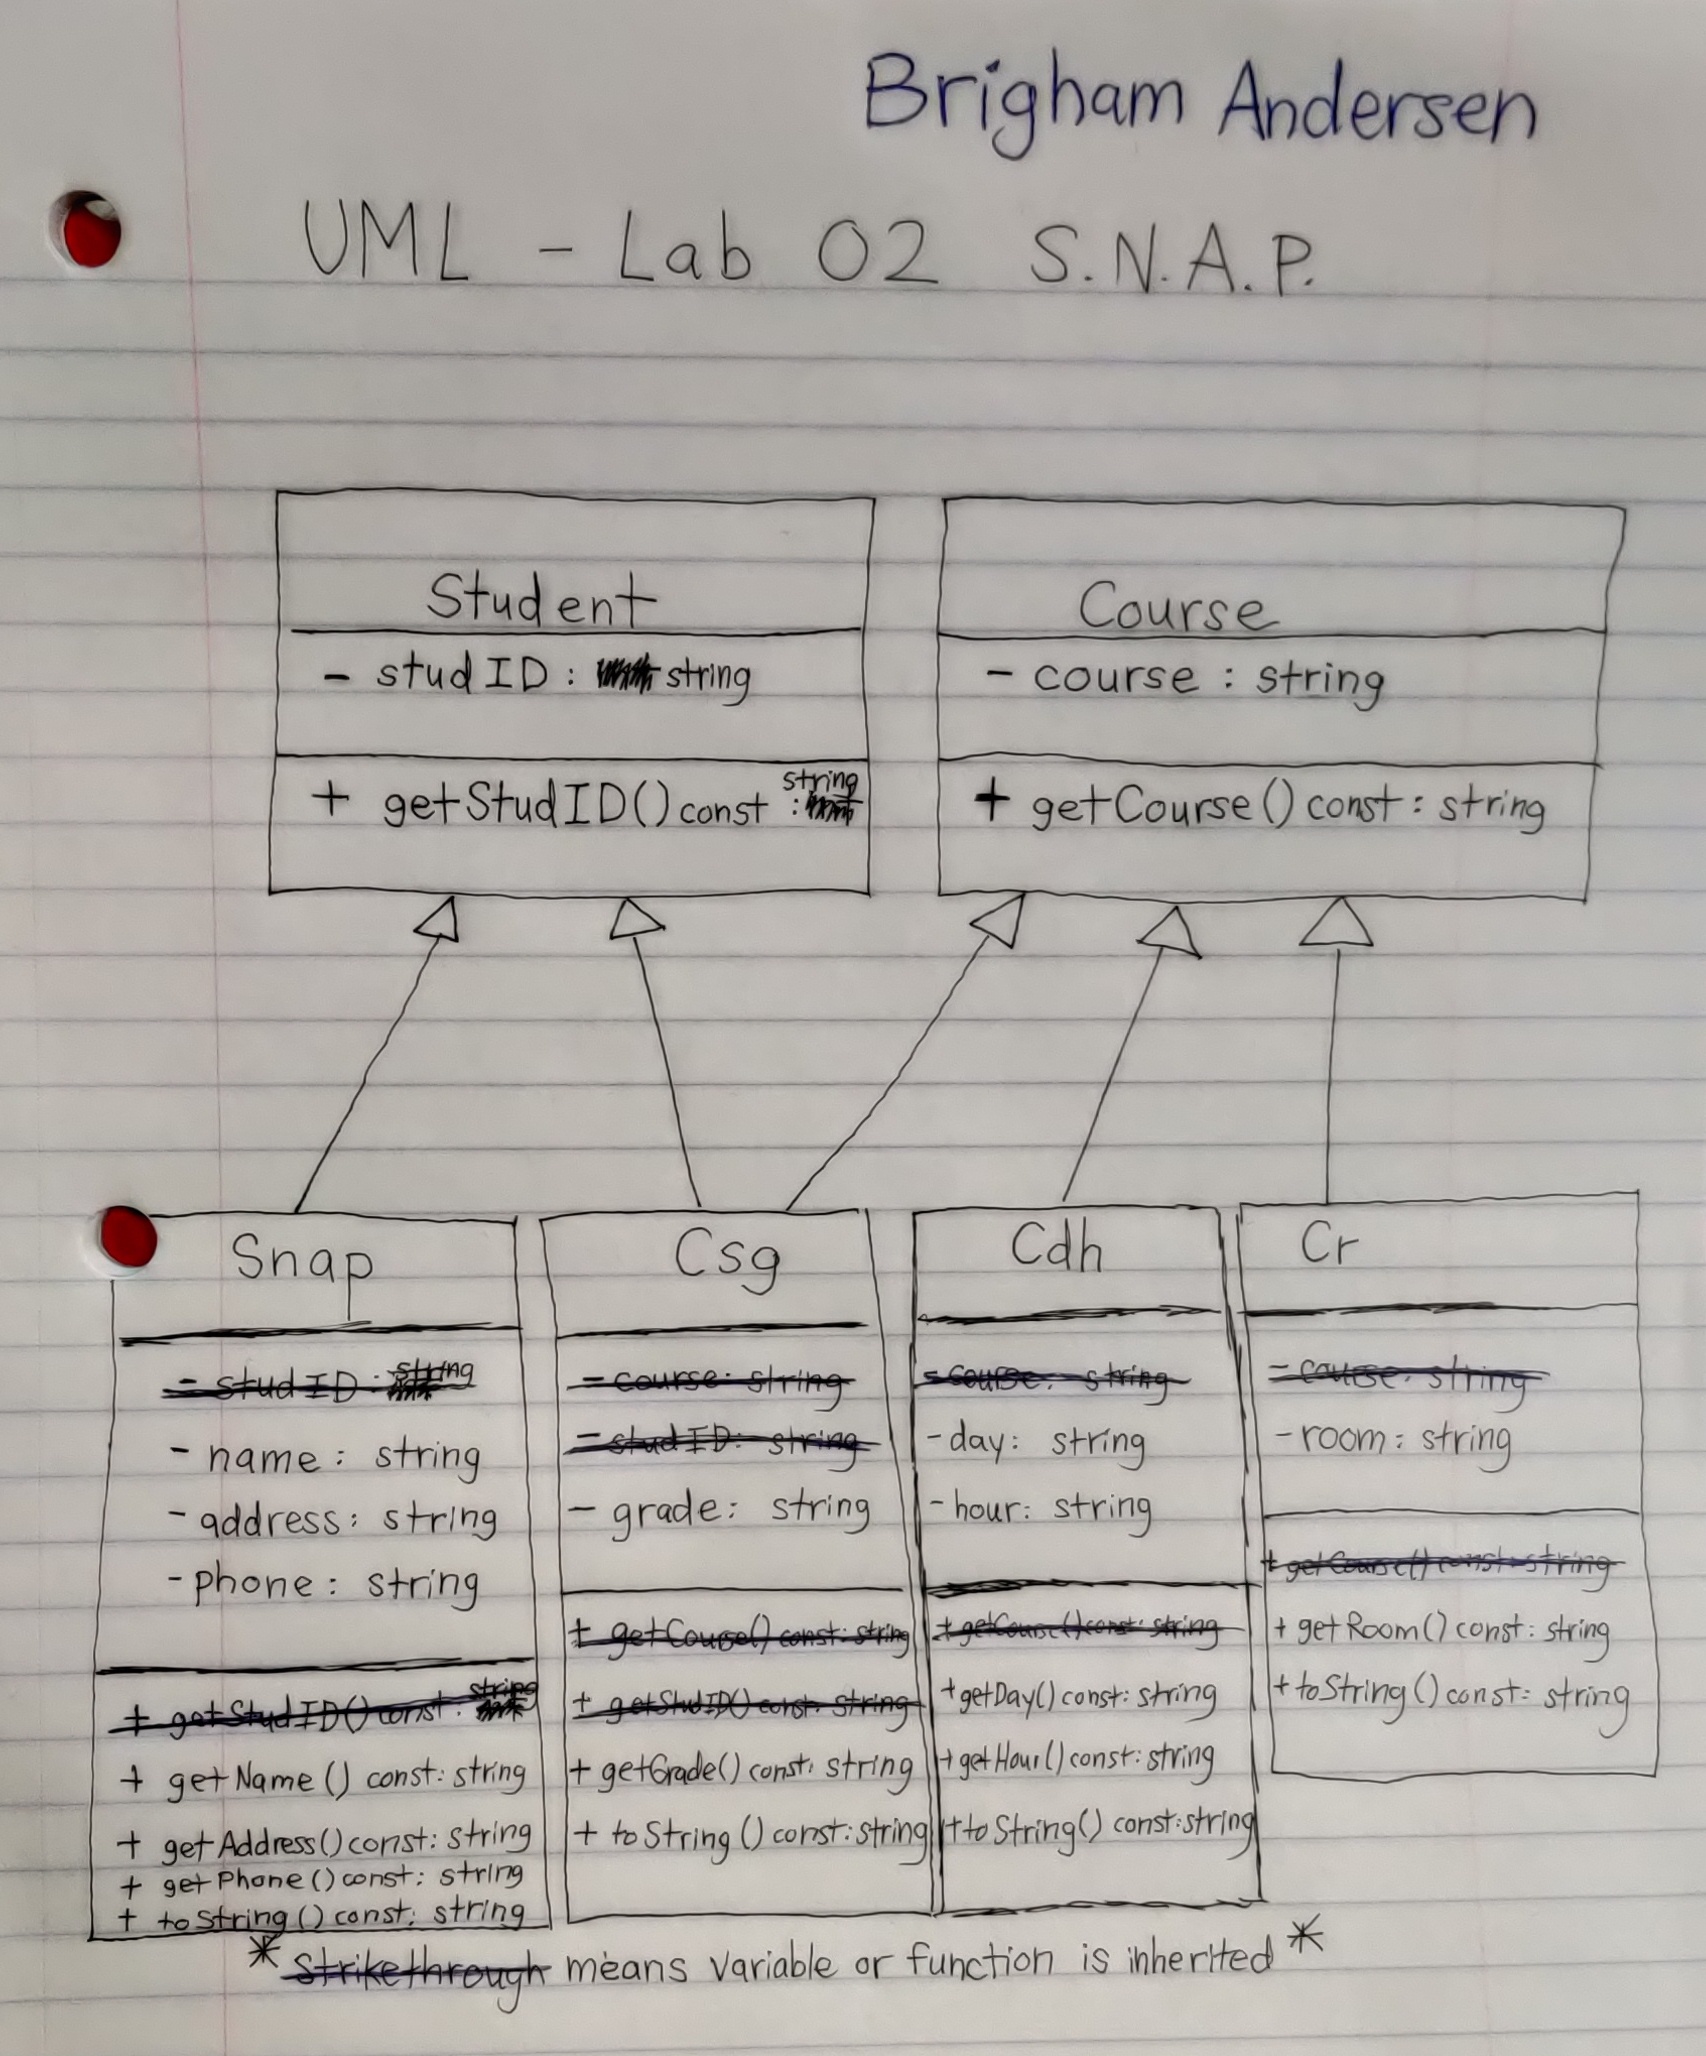 Brigham Andersen
UML - Lab 02 S.N.A.P.
Student
- studID : string
+ getStudID() const : string
Course
- course : string
+ getCourse() const : string
Snap
- studID : string
- name : string
- address : string
- phone : string
+ getStudID() const : string
+ getName() const : string
+ getAddress() const : string
+ getPhone() const : string
+ toString() const : string
Csg
- course : string
- studID : string
- grade : string
+ getCourse() const : string
+ getStudID() const : string
+ getGrade() const : string
+ toString() const : string
Cdh
- course : string
- day : string
- hour : string
+ getCourse() const : string
+ getDay() const : string
+ getHour() const : string
+ toString() const : string
Cr
- course : string
- room : string
+ getCourse() const : string
+ getRoom() const : string
+ toString() const : string
* Strikethrough means variable or function is inherited *